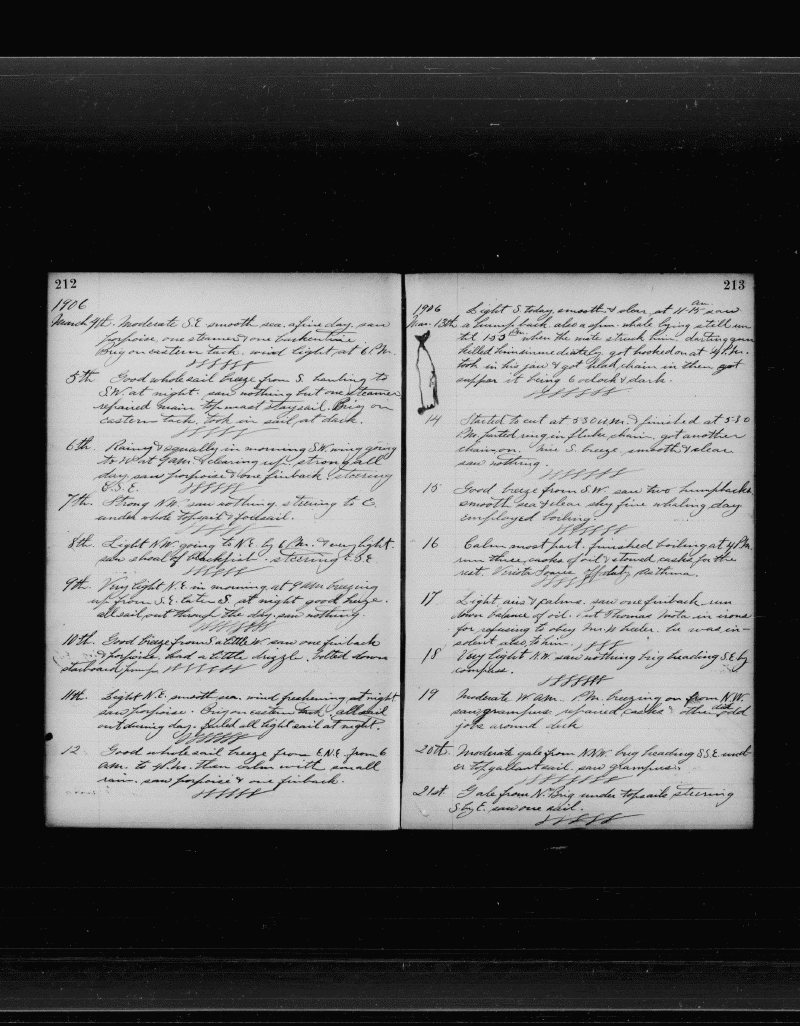 212
1906
March 4th. Moderate S.E. smooth sea. a fine day, saw
porpoise, one steamer & one barkentine
Brig on eastern tack. wind light at 6 P.M.
5th. Good whole sail breeze from S. hauling to
S.W. at night. saw nothing but one steamer
repaired main topmast staysail. Brig on
eastern tack, took in sail at dark.
6th. Rainy & squally in morning S.W. wing going
to W. at 9 AM. & clearing up. strong all
day, saw porpoise & one finback. steering
E.S.E.
7th. Strong N.W. saw nothing. steering to E.
under whole topsail & foresail.
8th. Light N.W. going to N.E. by & very light.
saw shoal of Blackfish steering E.S.E
9th. Very light N.E. in morning, at 9 AM breezing
up from S.E. later S. at night good breeze.
all sail out through the day. saw nothing
10th. Good breeze from S a little W. saw one finback
& porpoise. had a little drizzle. bolted down
starboard pump
11th. Light N.E. smooth sea, wind freshening at night
saw porpoise. Brig on eastern tack, all sail
out during day. furled all light sail at night.
12 Good whole sail breeze from E.N.E. from 6
AM. to then calm with small
rain. saw porpoise & one finback.
213
1906 Light S. today, smooth & clear, at 11-15 AM saw
Mar. 13th a hump back also a spm. whale lying still un
til 1 35 PM when the mate struck him, darting gun
killed him immediately, got hooked on at 4 P.M.
took in his jaw & got head chain in then got
supper it being 6 oclock & dark.
14 Started to cut at 5 30 AM. & finished at 5 30
P.M. parted ring in fluke chain. got another
chain on. fine S. breeze, smooth & clear
saw nothing.
15 Good breeze from S.W. saw two humpbacks
smooth sea & clear sky fine whaling day
employed boiling.
16 Calm most part. finished boiling at 4 P.M.
run three casks of oil & stowed casks for the
rest. off duty Asthma.
17 Light airs & calms. saw one finback, run
down balance of oil. Put Thomas Mota in irons
for refusing to obey Mr. he was in-
solent also to him.
18 Very light N.W. saw nothing brig heading S.E. by
compass.
19 Moderate W. AM. P.M. breezing on from N.W.
saw grampus, repaired casks & other odd
jobs around deck
20th. Moderate gale from N.N.W. brig heading S.S.E und-
er topgallant sail. saw grampus.
21st. Gale from N. Brig under topsails steering
S. by E. saw one sail.